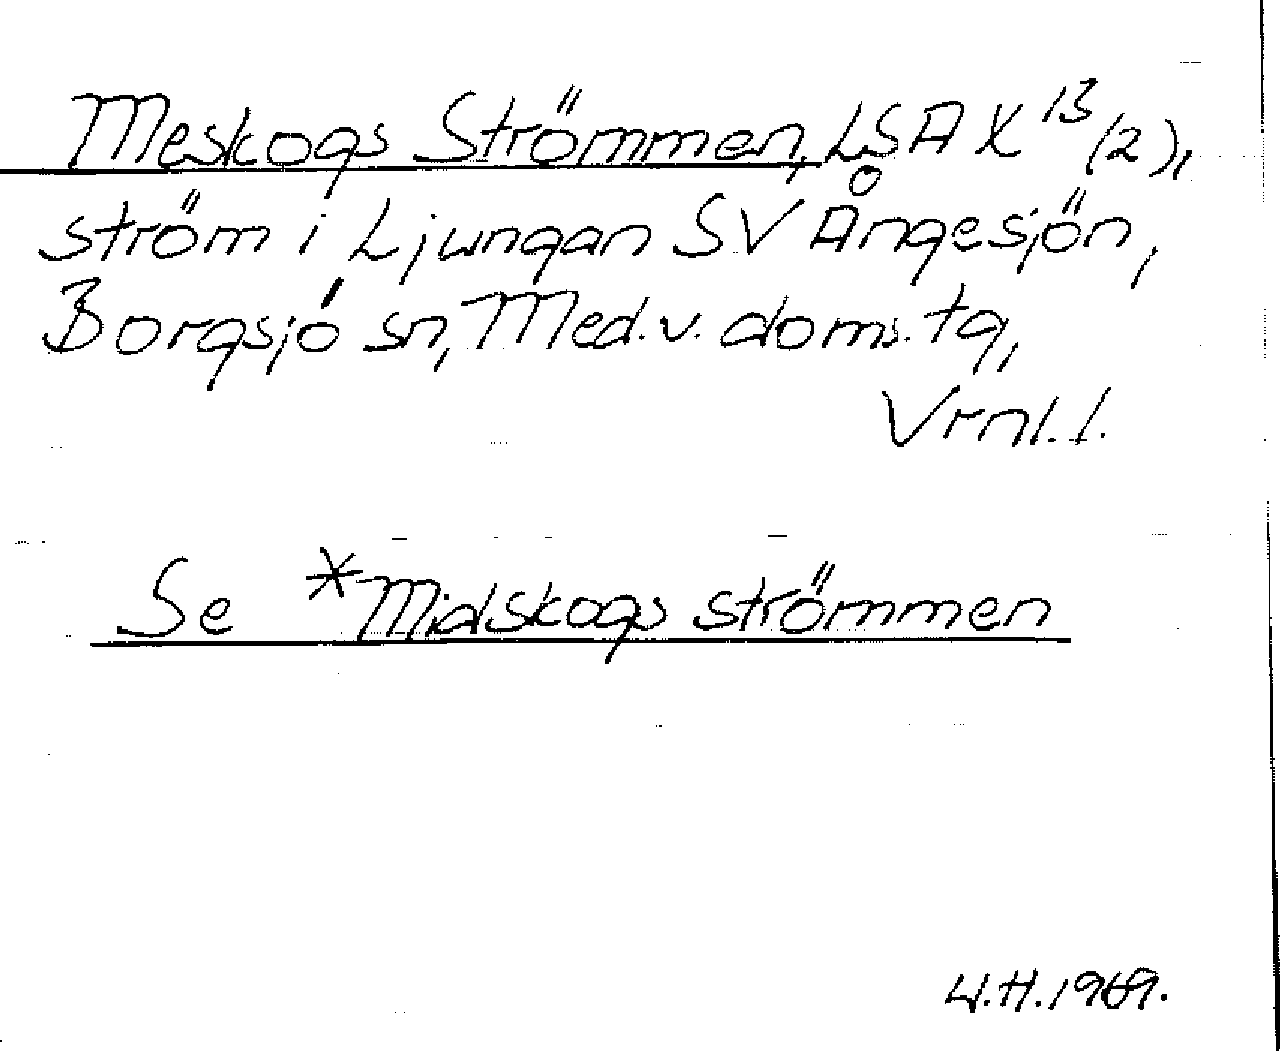 Meskogs Strömmen, LSA X 13/(2),
ström i Ljungan SV Ångesjön,
Borgsjö sn, Med.v. doms. tg,
Vrnl. l.
Se *Midskogs strömmen
W.H. 1969.